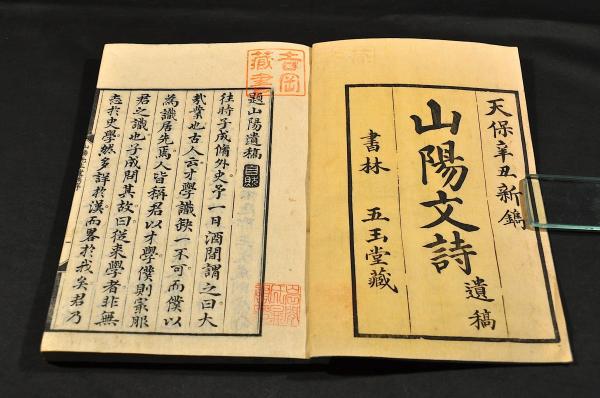 天保辛丑新鐫
山陽文詩遺稿
書林 五玉堂藏
吉岡
藏書
題山陽遺稿
往時子成脩外史予一日酒間謂之曰大
哉業也古人云才學識缺一不可而僕以
為識居先焉人皆稱君以才學僕則窃服
君之識也子成問其故曰從来學者非無
志於史學然多詳於漢而畧於我矣君乃